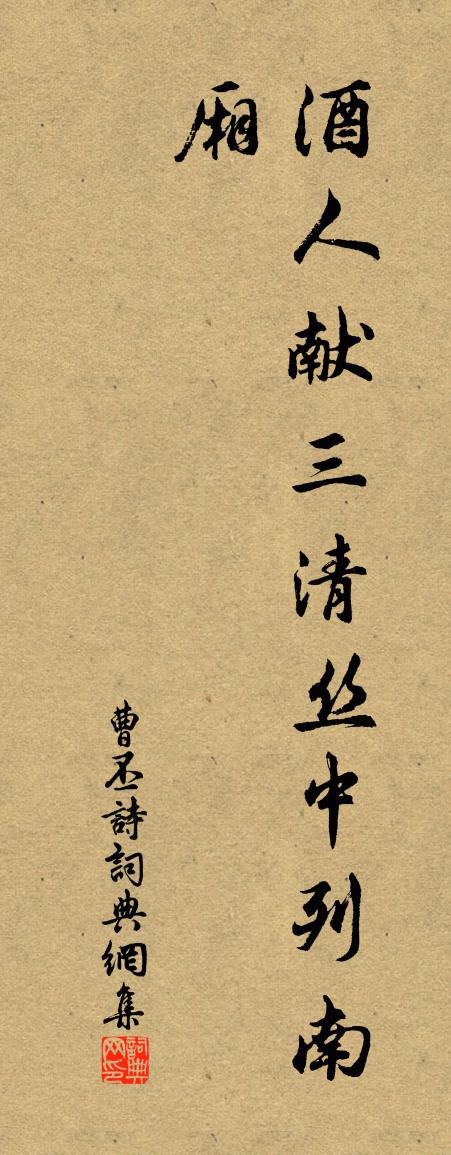 酒人献三清丝中列南
厢
曹丕詩詞典網集
詞典网印